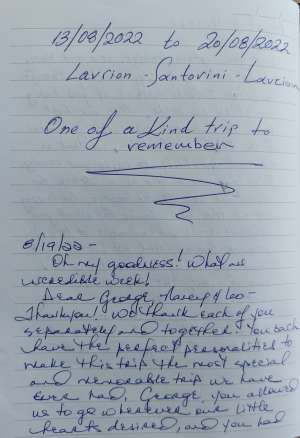 13/08/2022 to 20/08/2022
Lavrion - Santorini - Lavrion
One of a kind trip to
remember
8/19/22 -
Oh my goodness! What an
incredible week!
Dear George, & Leo -
Thankyou! We thank each of you
separately and together! You each
have the perfect personalities to
make this trip the most special
and memorable trip we have
ever had. George, you allowed
us to go wherever our little
hearts desired, and you had